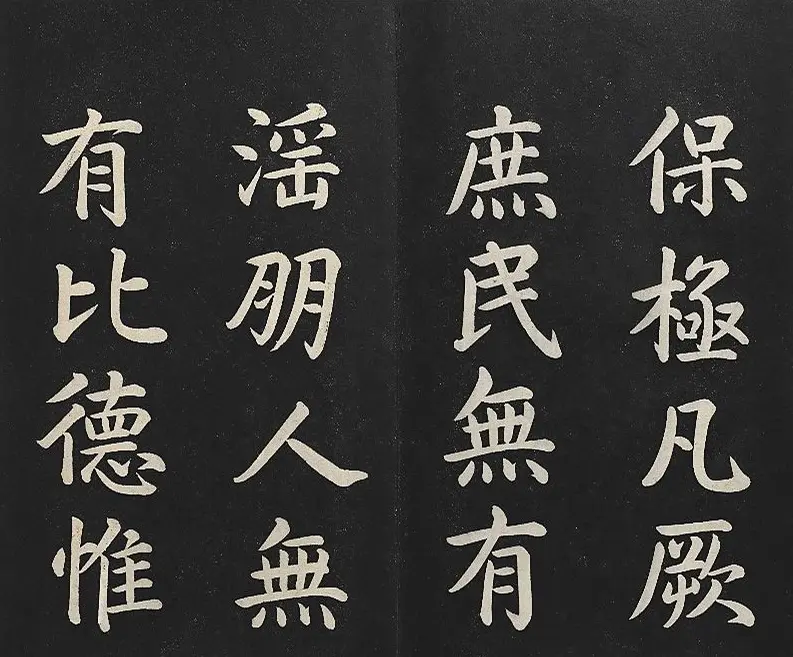 保極凡厥
庶民無有
淫朋人無
有比德惟